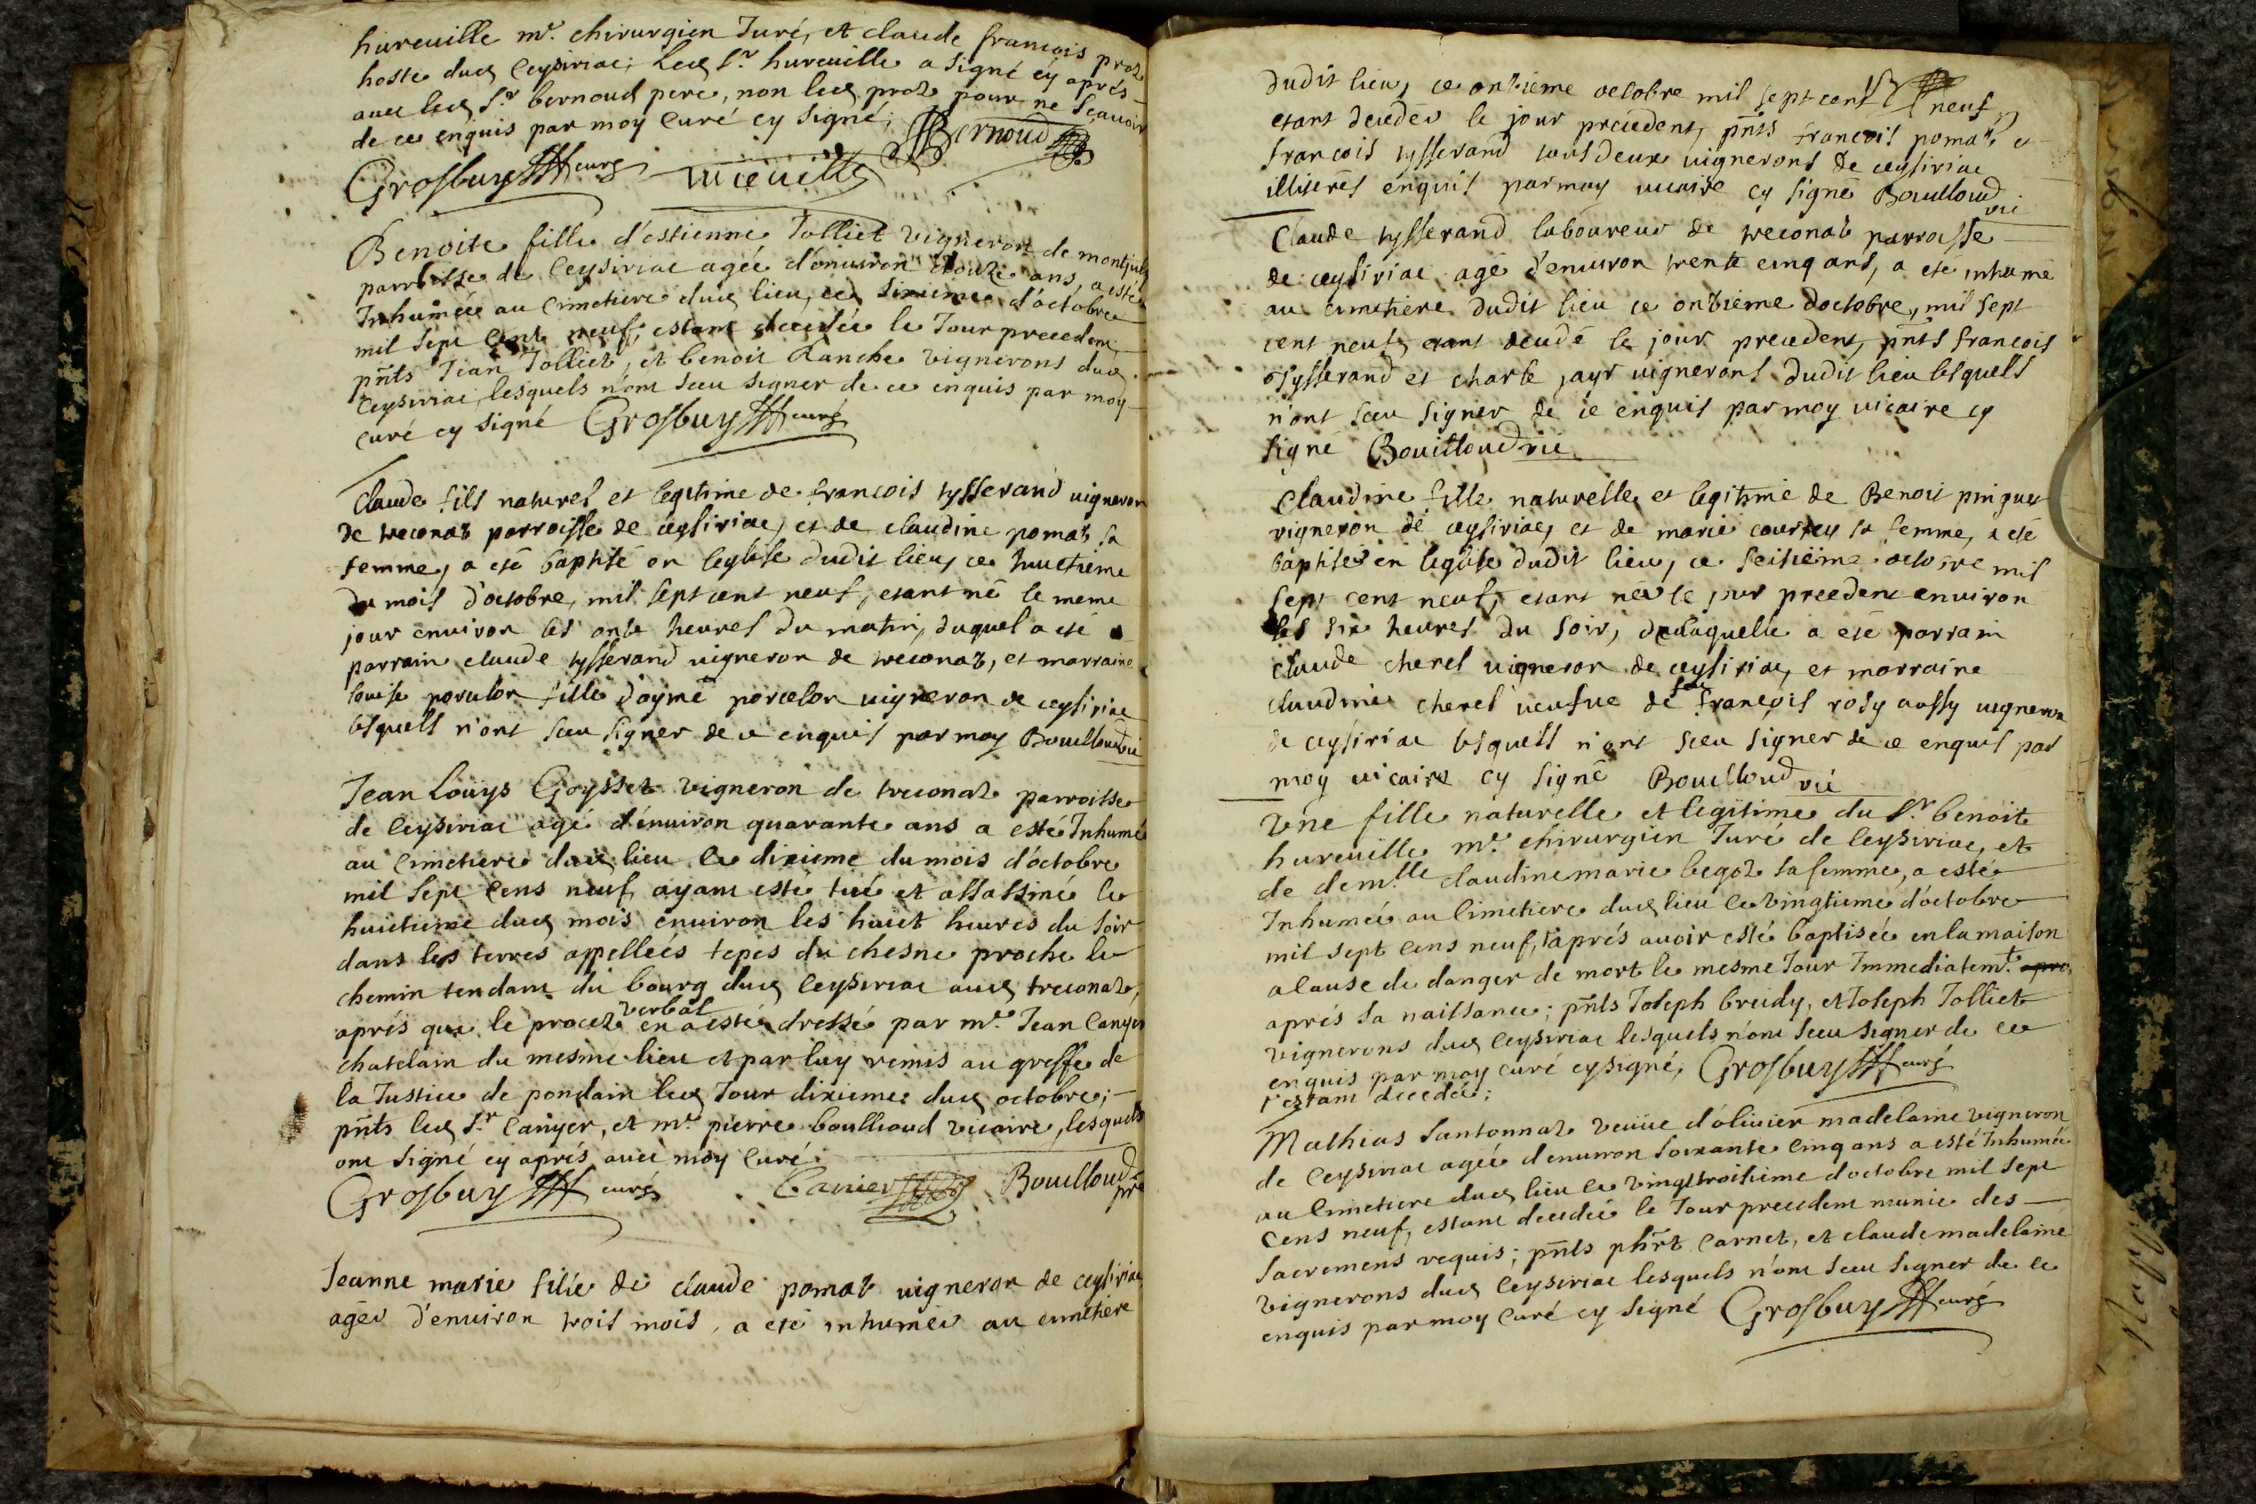 hureuille mr. chirurgien Juré, et claude francois proz
hoste dud Ceysiriac; Led Sr. hureuille a signé cy aprés
avec led Sr bernoud pere, non led proz pour ne scavoir
de ce enquis par moy Curé cy signé; Bernoud
Grosbuy curé hureuille
Benoite fille d'estienne Tolliet vigneron de montjuli
parroisse de Ceysiriac agée d'enuiron douze ans, a esté
Inhumée au Cimetiere dud lieu, ce sixieme d'octobre
mil sept Cent neuf, estant decedée le Jour precedent,
pnts Jean Tolliet, et benoit Ranche vignerons dud
Ceysiriac, lesquels n'ont sceu signer de ce enquis par moy
curé cy signé Grosbuy curé
Claude fils naturel et legitime de francois tysserand uigneron
de treconaz parroisse de ceysiriac, et de claudine pomaz sa
femme, a eté baptisé en leglise dudit lieu, ce huictieme
du mois d'octobre, mil sept cent neuf, etant né le meme
jour enuiron les onze heures du matin, duquel a eté
parrain claude tysserand uigneron de treconaz, et marraine
louise porcelon fille d'aymé porcelon uigneron de ceysiriac
lesquels n'ont sceu signer de ce enquis par moy Bouilloud vic
Jean Louys Goysset vigneron de treconaz parroisse
de Ceysiriac agé d'enuiron quarante ans a esté Inhumé
au Cimetiere dud lieu le dixieme du mois d'octobre
mil sept Cens neuf, ayant esté tué et assassiné le
huictieme dud mois enuiron les huict heures du soir
dans les terres appellées tepes du chesne proche le
chemin tendant du bourg dud Ceysiriac aud treconaz,
aprés que le procez verbal en a esté dressé par mr. Jean Canyer
chatelain du mesme lieu et par luy remis au greffe de
la Justice de pondain led Jour dixieme dud octobre;
pnts led Sr. Canyer, et mr. pierre boullioud vicaire, lesquels
ont signé cy aprés avec moy Curé.
Grosbuy curé Canier Bouilloud pre
Jeanne marie fille de claude pomaz uigneron de ceysiriac
agée d'enuiron trois mois, a eté inhumée au cimetiere
dudit lieu, ce onzieme octobre mil sept cent neuf,
etant decedée le jour precedent, pnts francois pomaz, et
francois tysserand tous deux uignerons de ceysiriac
illiterés enquis par moy uicaire cy signé Bouilloud vic
Claude tysserand laboureur de treconaz parroisse
de ceysiriac agé d'enuiron trente cinq ans, a eté inhumé
au cimetiere dudit lieu ce onzieme doctobre, mil sept
cent neuf, etant decedé le jour precedent, pnts francois
tysserand et charle jayr uignerons dudit lieu lesquels
n'ont sceu signer de ce enquis par moy uicaire cy
signé Bouilloud vic
Claudine fille naturelle et legitime de Benoit pinguet
vigneron de ceysiriac, et de marie courtey sa femme, a eté
baptisée en leglise dudit lieu, ce seizieme octobre mil
sept cent neuf, etant née le jour precedent environ
les six heures du soir, de laquelle a eté parrain
claude cherel uigneron de ceysiriac, et marraine
claudine cherel ueufue de feu françois rosy aussy uigneron
de ceysiriac lesquels n'ont sceu signer de ce enquis par
moy uicaire cy signé Bouilloud vic
Une fille naturelle et legitime du Sr. benoit
hureuille mr. chirurgien Juré de Ceysiriac, et
de demlle claudine marie begoz sa femme, a esté
Inhumée au Cimetiere dud lieu le vingtieme d'octobre
mil sept Cens neuf, aprés auoir esté baptisée en la maison
a Cause de danger de mort le mesme Jour Immediatemt.
aprés sa naissance; pnts Joseph breidy, et Joseph Tolliet
vignerons dud Ceysiriac lesquels n'ont sceu signer de ce
enquis par moy curé cy signé, Grosbuy curé
estant decedée;
Mathias santonnaz veuue d'oliuier madelaine vigneron
de Ceysiriac agée denuiron soixante Cinq ans a esté Inhumée
au Cimetiere dud lieu le vingttroisieme doctobre mil sept
Cens neuf, estant decedée le Jour precedent munie des
sacremens requis; pnts phrt Carnet, et claude madelaine
vignerons dud Ceysiriac lesquels n'ont sceu signer de ce
enquis par moy Curé cy signé Grosbuy curé